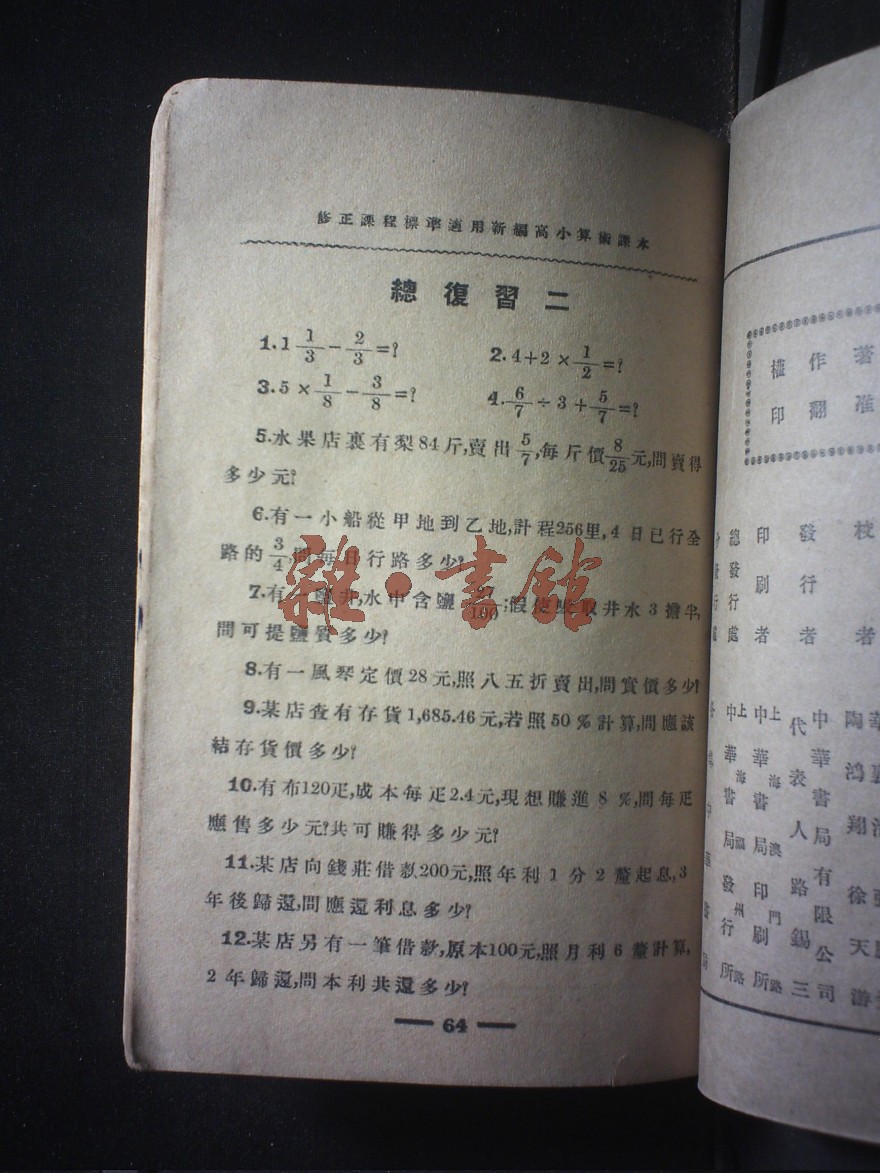 修正課程標準適用新編高小算術課本
總復習二
1. 1 1/3 - 2/3 =? 2. 4+2× 1/2 =?
3. 5× 1/8 - 3/8 =? 4. 6/7 ÷3+ 5/7 =?
5.水果店裏有梨84斤,賣出 5/7 ,每斤價 8/25 元,問賣得
多少元?
6.有一小船從甲地到乙地,計程256里,4日已行全
路的 3/4 ,問每日行路多少?
7.有一鹽井,水中含鹽 /100 ;假使 取井水3擔半,
問可提鹽質多少?
8.有一風琴定價28元,照八五折賣出,問實價多少?
9.某店查有存貨1,685.46元,若照50%計算,問應該
結存貨價多少?
10.有布120疋,成本每疋2.4元,現想賺進8%,問每疋
應售多少元?共可賺得多少元?
11.某店向錢莊借款200元,照年利1分2釐起息,3
年後歸還,問應還利息多少?
12.某店另有一筆借款,原本100元,照月利6釐計算,
2年歸還,問本利共還多少?
64
雜·書館
著作權
准翻印
校者
發行者
印刷者
總發行處
分發行處
陶鴻翔 徐天游
中華書局有限公司
代表人 路錫三
上海澳門路
中華書局印刷所
上海福州路
中華書局發行所